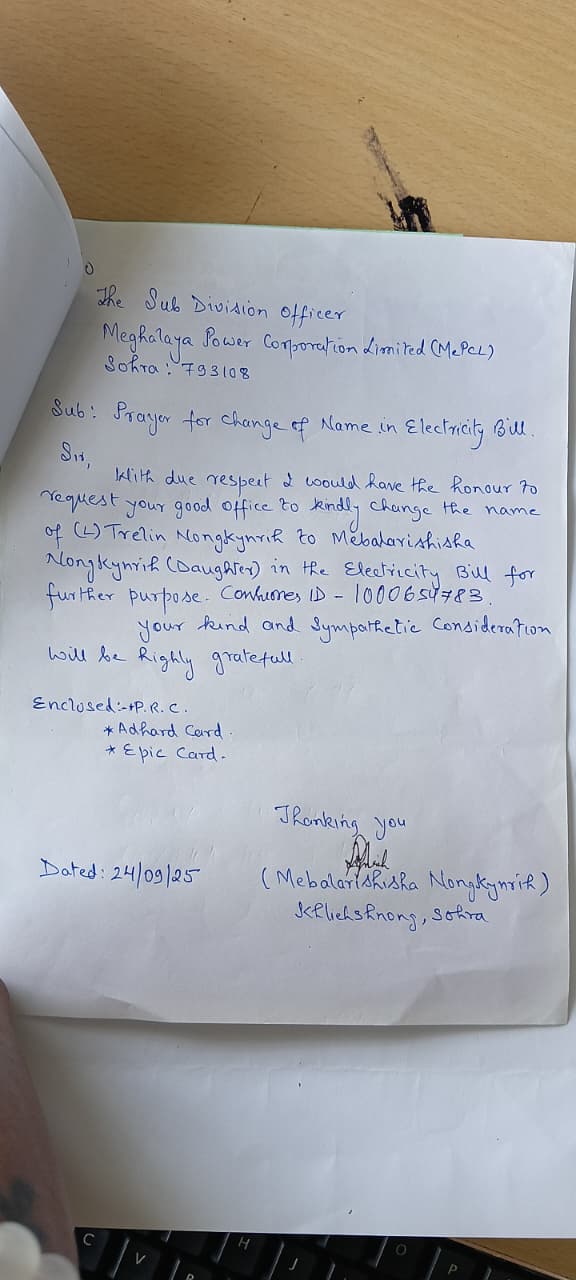 The Sub Division Officer
Meghalaya Power Corporation Limited (MePCL)
Sohra : 793108
Sub : Prayer for Change of Name in Electricity Bill.
Sir,
With due respect I would have the honour to
request your good office to kindly change the name
of (L) Trelin Nongkynrih to Mebalarishisha
Nongkynrih (Daughter) in the Electricity Bill for
further purpose. ID - 1000654783.
your kind and Sympathetic Consideration
will be highly gratefull
Enclosed :- *P.R.C.
* Adhard Card.
* Epic Card.
Thanking you
Dated : 24/09/25
(Mebalarishisha Nongkynrih)
Khliehshnong, Sohra
C
V
B
H
J
O
P